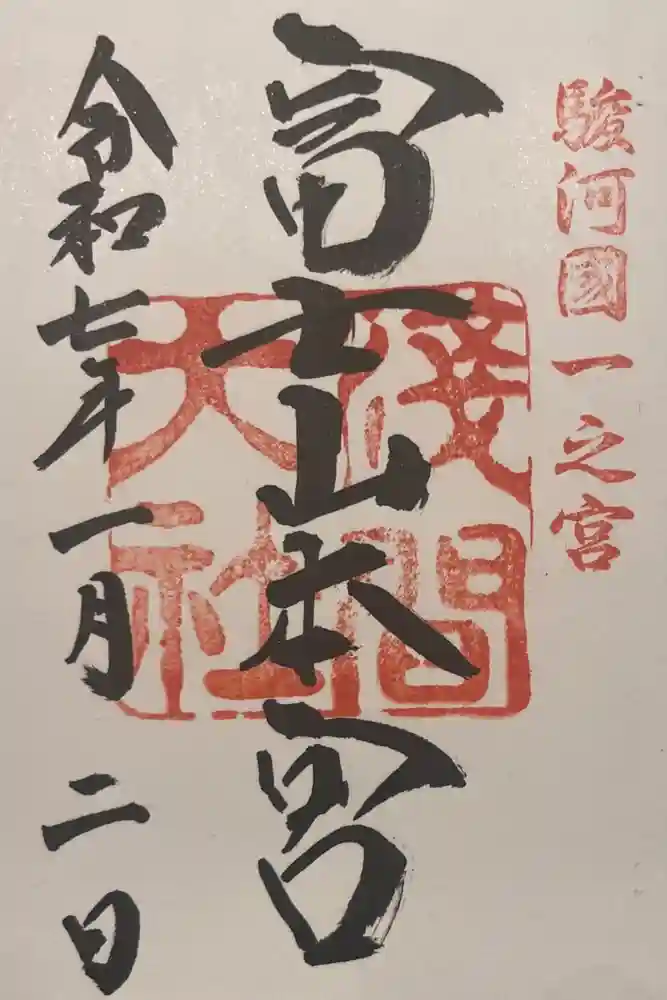 駿河國一之宮
冨士山本宮
淺間
大社
令和七年一月二日